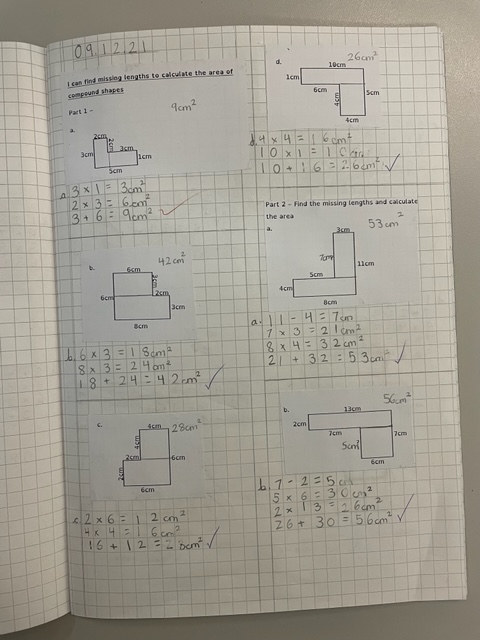 09.12.21
I can find missing lengths to calculate the area of
compound shapes
Part 1 -
9cm²
a.
2cm
2cm
3cm
3cm
1cm
5cm
a. 3 x 1 = 3cm²
2 x 3 = 6cm²
3 + 6 = 9cm²
b.
42cm²
6cm
3cm
6cm
2cm
3cm
8cm
b. 6 x 3 = 18cm²
8 x 3 = 24cm²
18 + 24 = 42cm²
c.
28cm²
4cm
4cm
2cm
6cm
2cm
6cm
c. 2 x 6 = 12cm²
4 x 4 = 16cm²
16 + 12 = 28cm²
d.
26cm²
10cm
1cm
6cm
5cm
4cm
4cm
d. 4 x 4 = 16cm²
10 x 1 = 10cm
10 + 16 = 26cm²
Part 2 – Find the missing lengths and calculate
the area
a.
53cm²
3cm
7cm
11cm
5cm
4cm
8cm
a. 11 - 4 = 7cm
7 x 3 = 21cm²
8 x 4 = 32cm²
21 + 32 = 53cm²
b.
56cm²
13cm
2cm
7cm
7cm
5cm
6cm
b. 7 - 2 = 5cm
5 x 6 = 30cm²
2 x 13 = 26cm²
26 + 30 = 56cm²